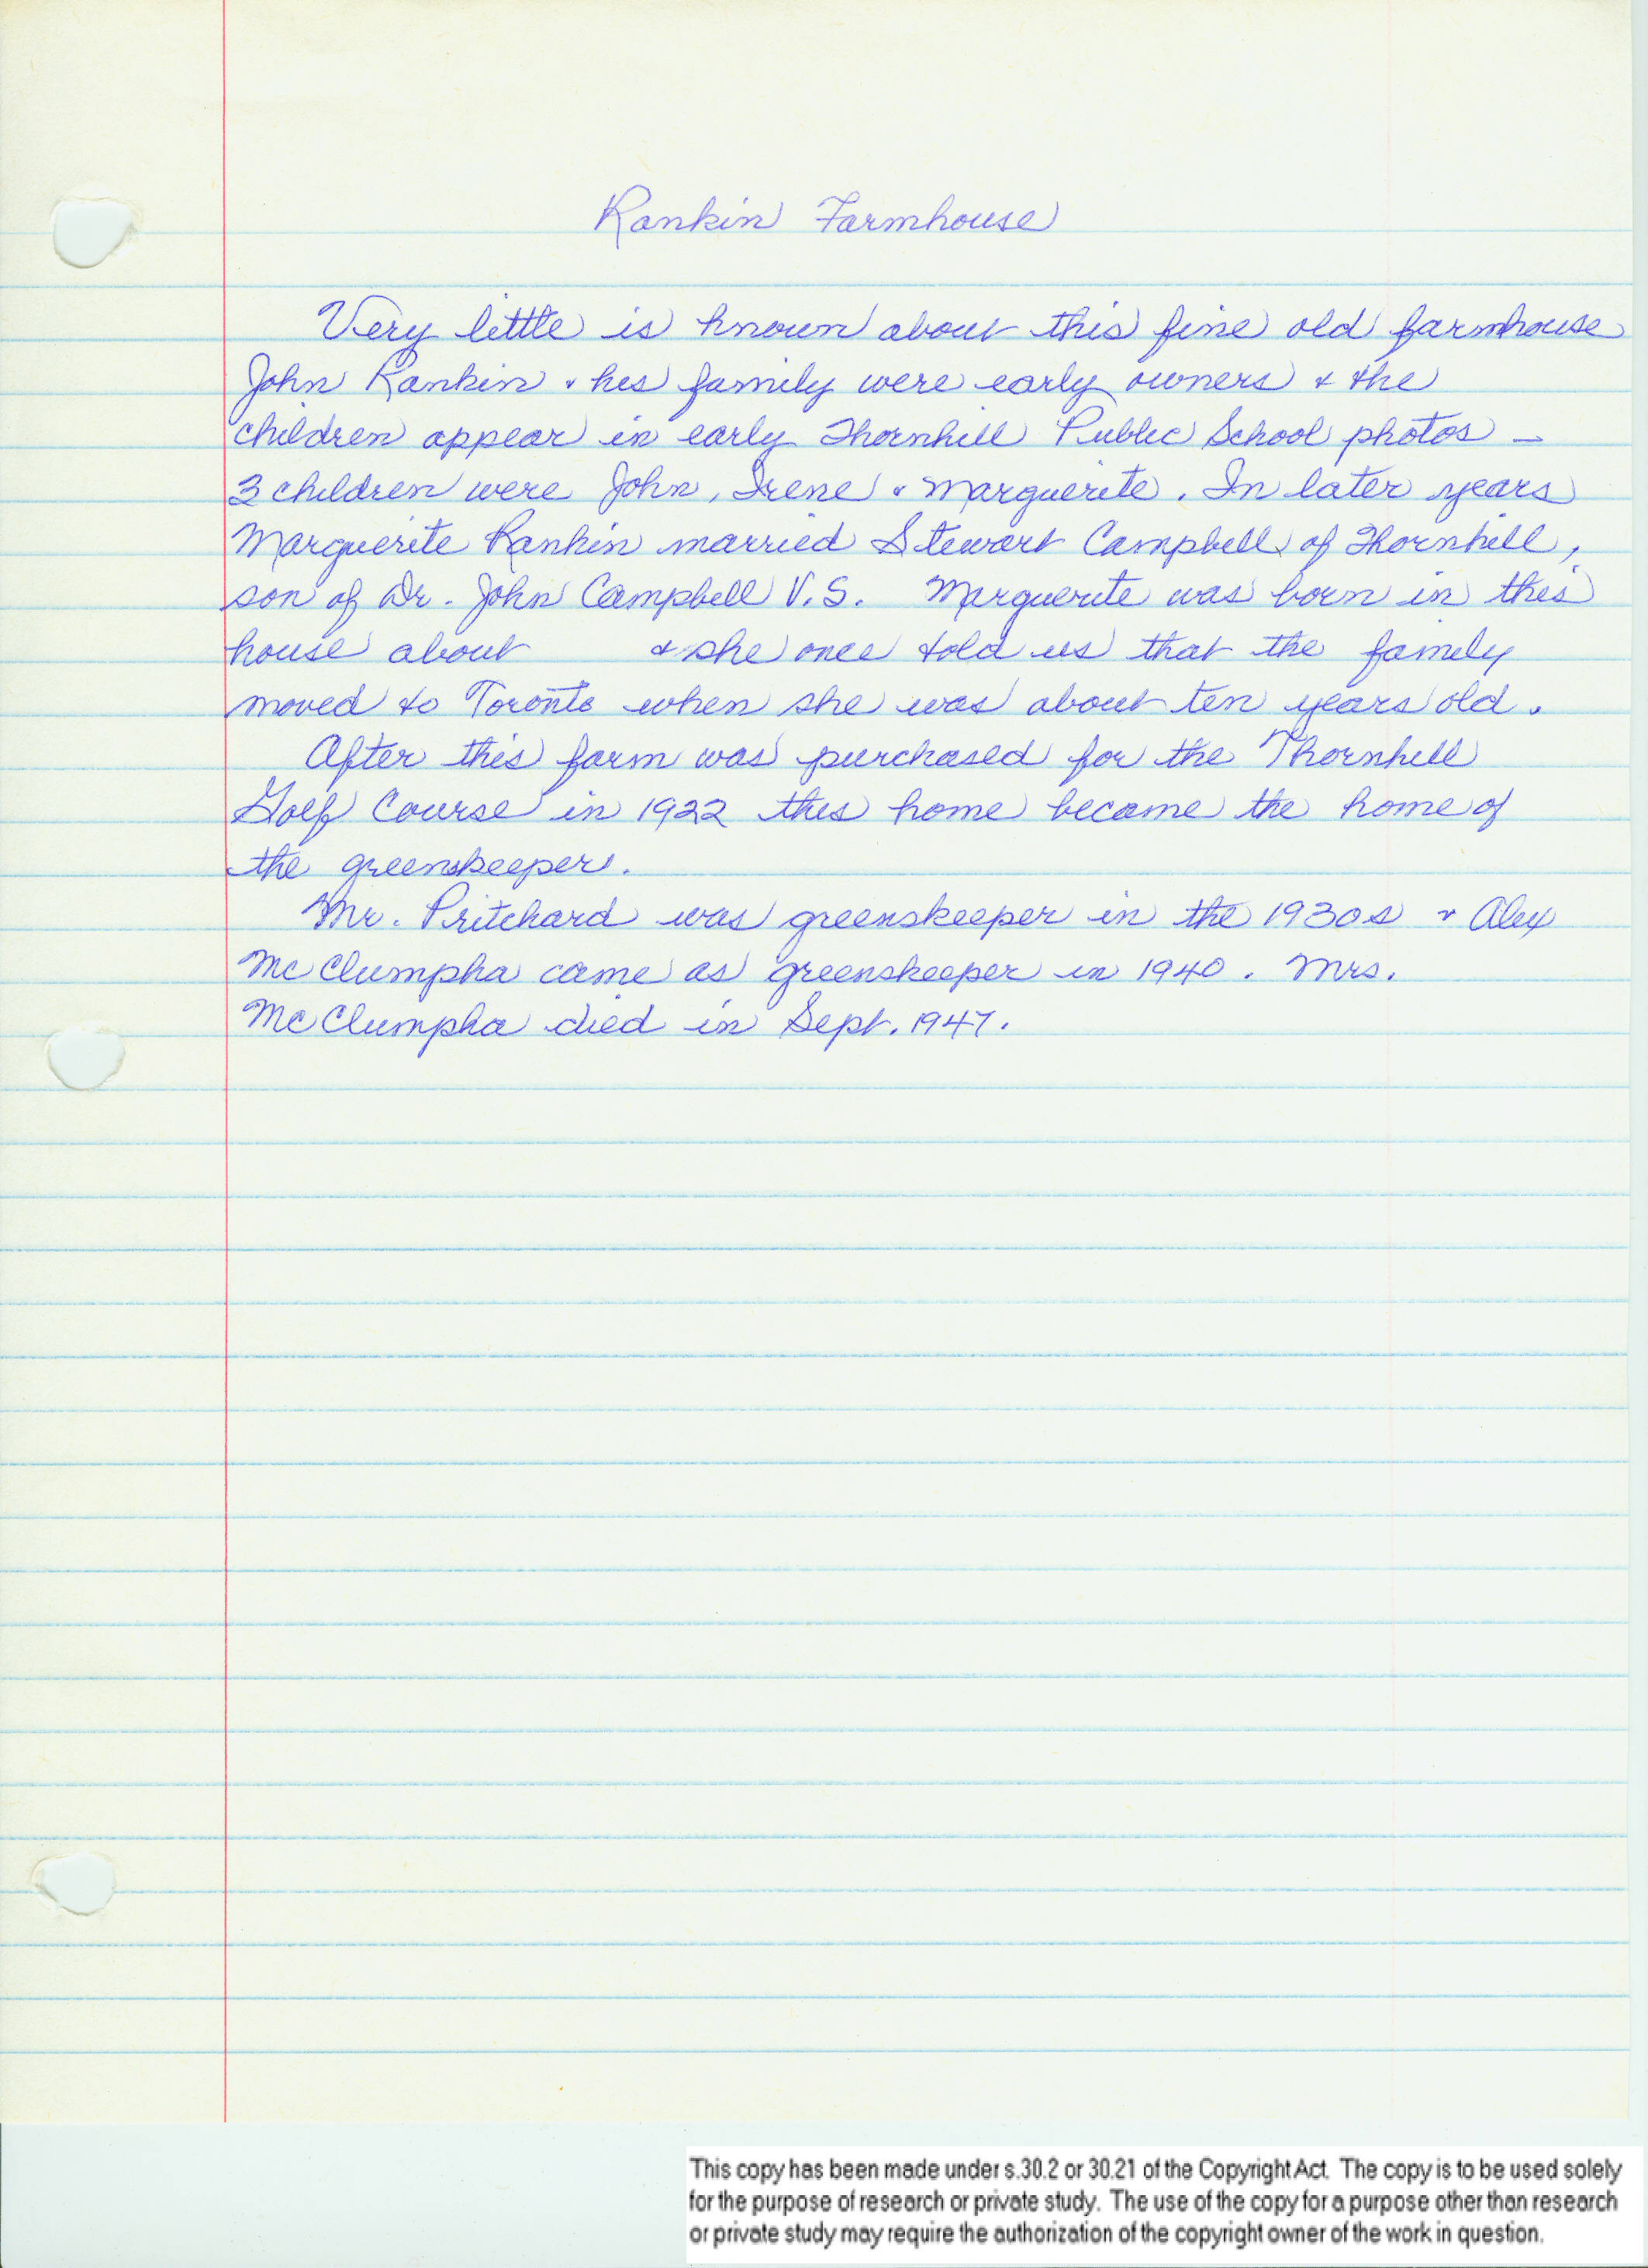 Rankin Farmhouse
Very little is known about this fine old farmhouse
John Rankin & his family were early owners & the
children appear in early Thornhill Public School photos –
3 children were John, Irene & Marguerite. In later years
Marguerite Rankin married Stewart Campbell of Thornhill,
son of Dr. John Campbell V.S. Marguerite was born in this
house about & she once told us that the family
moved to Toronto when she was about ten years old.
After this farm was purchased for the Thornhill
Golf Course in 1922 this home became the home of
the greenskeeper.
Mr. Pritchard was greenskeeper in the 1930s & Alex
McClumpha came as greenskeeper in 1940. Mrs.
McClumpha died in Sept. 1947.
This copy has been made under s.30.2 or 30.21 of the Copyright Act. The copy is to be used solely
for the purpose of research or private study. The use of the copy for a purpose other than research
or private study may require the authorization of the copyright owner of the work in question.